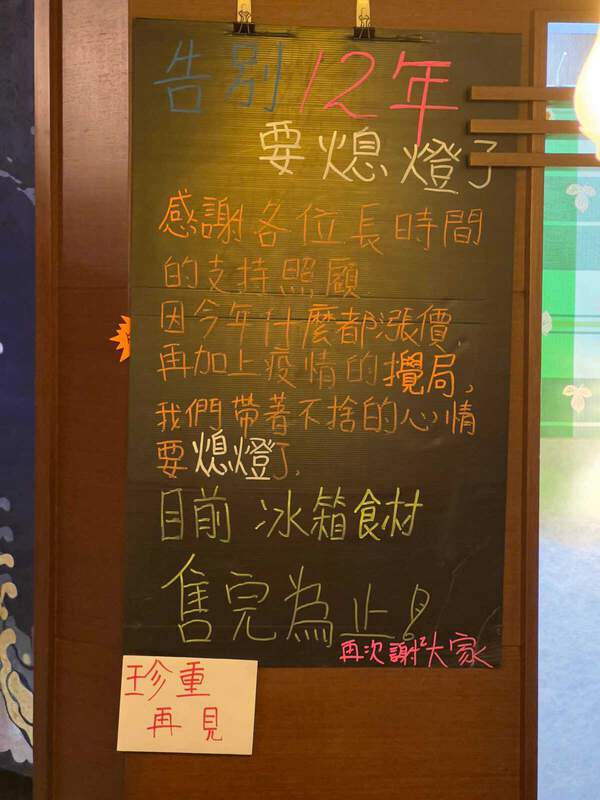 告別12年
要熄燈了
感謝各位長時間
的支持照顧
因今年什麼都漲價,
再加上疫情的攪局,
我們帶著不捨的心情
要熄燈了,
目前 冰箱食材
售完為止!
再次謝謝大家
珍重
再見